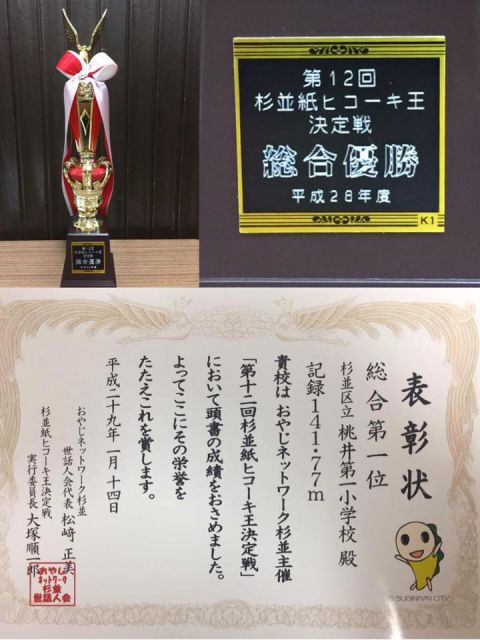 第12回
杉並紙ヒコーキ王
決定戦
総合優勝
平成28年度
K1
第12回
杉並紙ヒコーキ王
決定戦
総合優勝
平成28年度
表彰状
総合第一位
杉並区立 桃井第一小学校 殿
記録141.77m
貴校は おやじネットワーク杉並主催
「第十二回杉並紙ヒコーキ王決定戦」
において頭書の成績をおさめました。
よってここにその栄誉を
たたえこれを賞します。
平成二十九年一月十四日
おやじネットワーク杉並
世話人会代表 松﨑 正美
杉並紙ヒコーキ王決定戦
実行委員長 大塚順一郎
おやじ
ネットワーク
杉並
世話人会
© SUGINAMI CITY